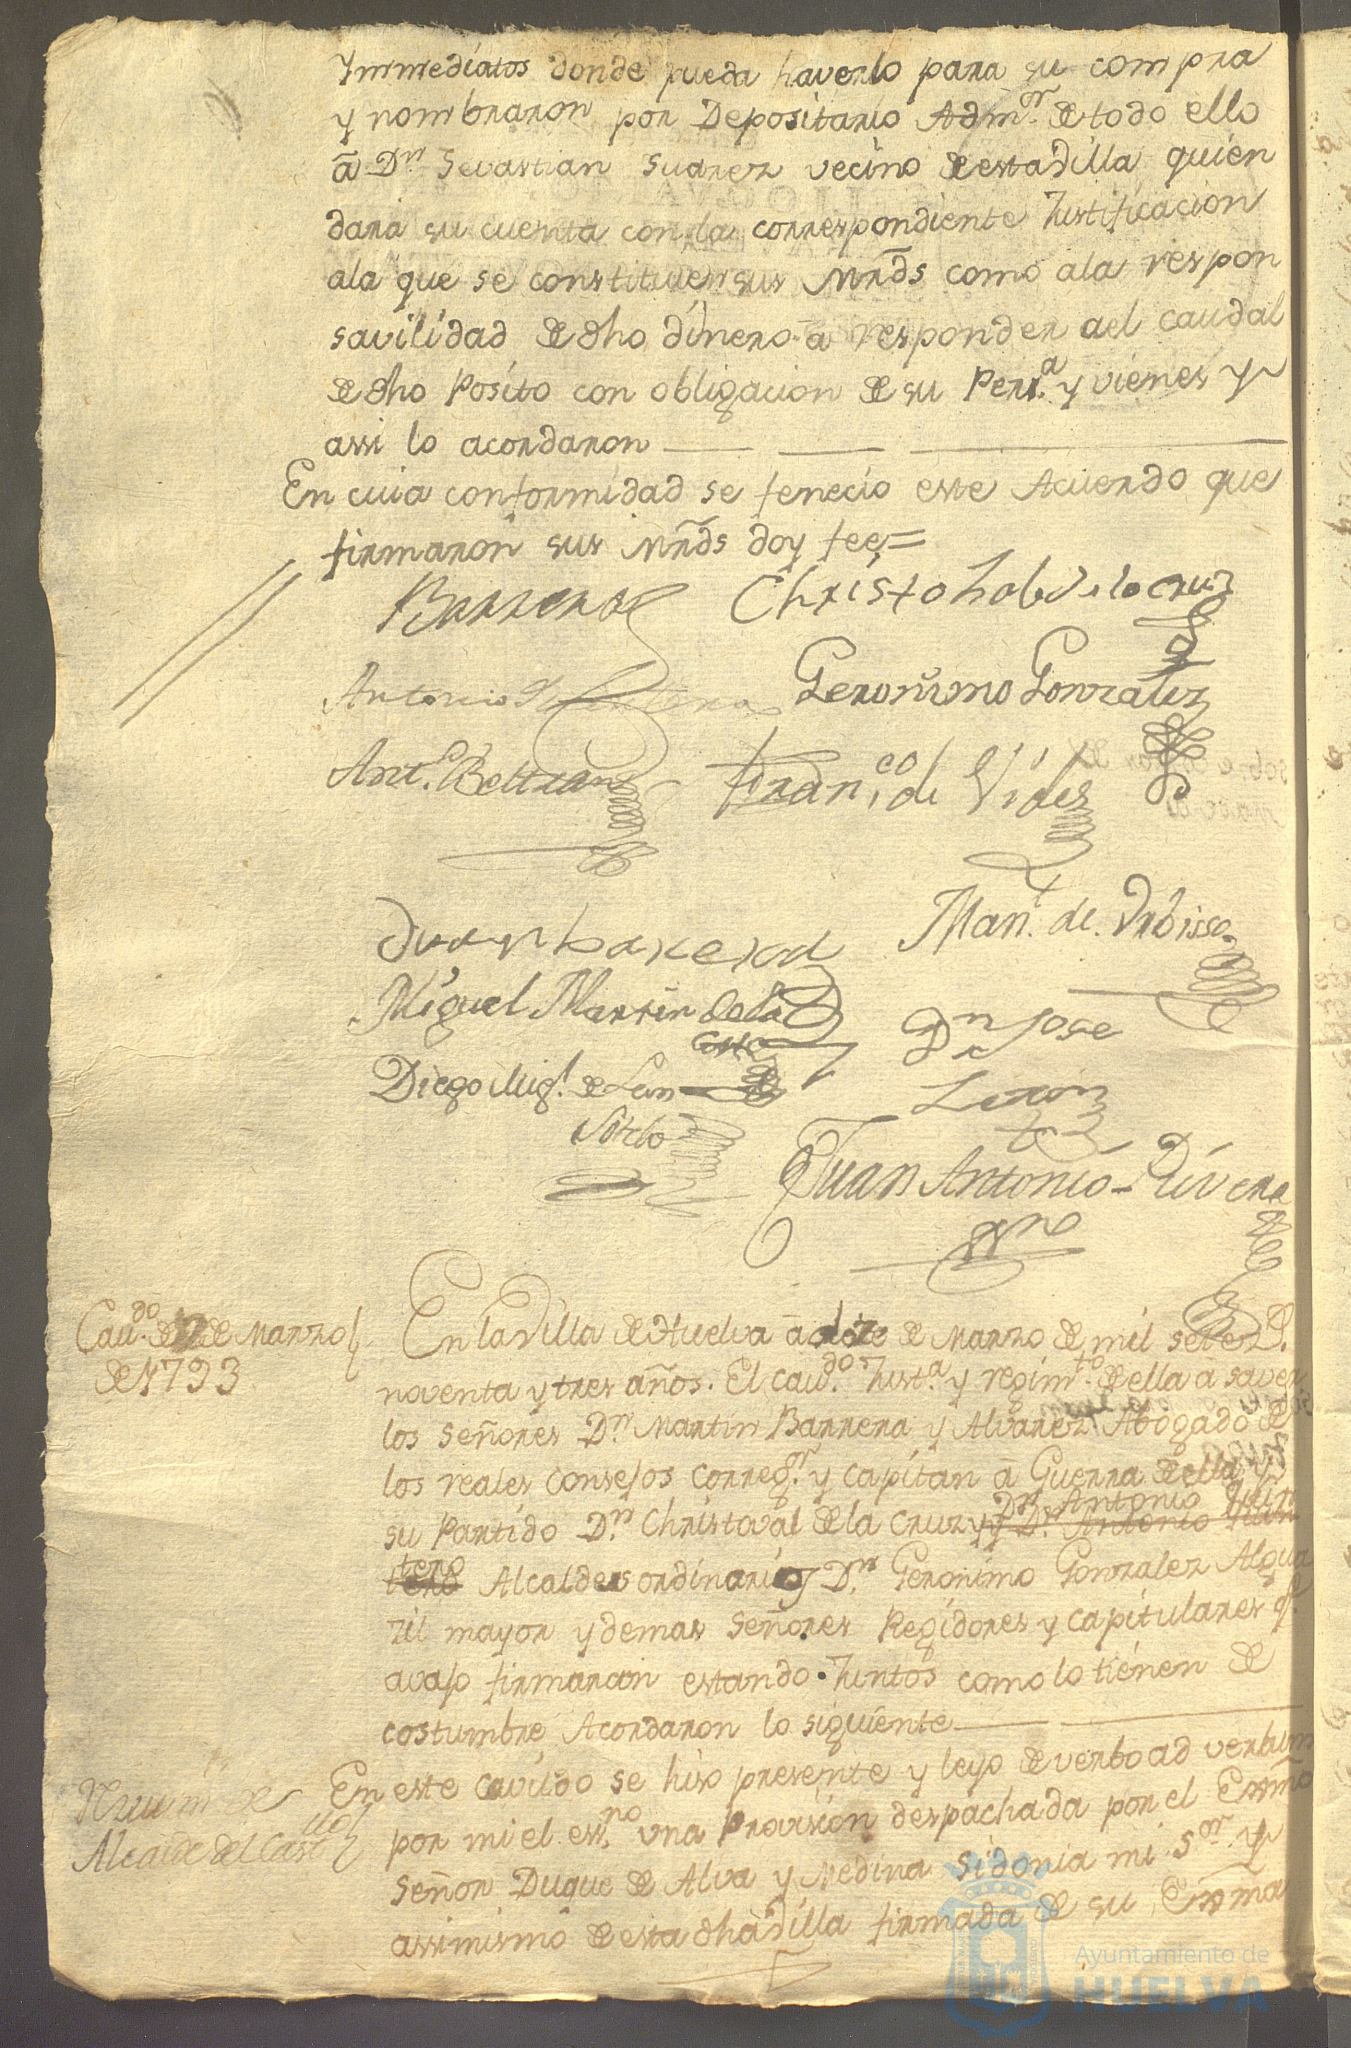 Ymmediatos donde pueda haverlo para su compra
y nombraron por Depositario Adm.or de todo ello
a D.n Sevastian Suarez vecino de esta Villa quien
dara su cuenta con la correspondiente Justificacion
ala que se constituien sus Mrds como ala respon
savilidad de dho dinero a responder ael caudal
de dho Posito con obligacion de su Pers.a y vienes y
assi lo acordaron
En cuia conformidad se fenecio este Acuerdo que
firmaron sus Mrds doy fee=
Barrera
Christobal de la cruz
Antonio
Geronimo Gonzalez
Ant.o Beltran
Fran.co de Vides
Juan
Man.l de
Miguel Martin de la
Corte
D.n Jose
Diego Mig.l de Leon
Sotelo
Juan Antonio Rivera
Ess.no
Cav.do de 12 de Marzo
de 1793
En la Villa de Huelva a doze de Marzo de mil setez.s
noventa y tres años. El cav.do Just.a y regim.to de ella a saver
los señores D.n Martin Barrera y Alvarez Abogado de
los reales consejos correg.or y capitan a Guerra de ella y
su Partido D.n Christoval de la Cruz y D.n Antonio Quin
tero Alcaldes ordinarios D.n Geronimo Gonzalez Algua
zil mayor y demas señores Regidores y capitulares q.e
avajo firmaron estando Juntos como lo tienen de
costumbre Acordaron lo siguiente
Nravm.to de
Alcaide del Cast.llo
En este cavildo se hiso presente y leyo de verbo ad verbum
por mi el ess.no una Provision despachada por el Exmo
señor Duque de Alva y Medina Sidonia mi S.or y
assimismo de esta dha Villa firmada de su Exma
Ayuntamiento de
HUELVA